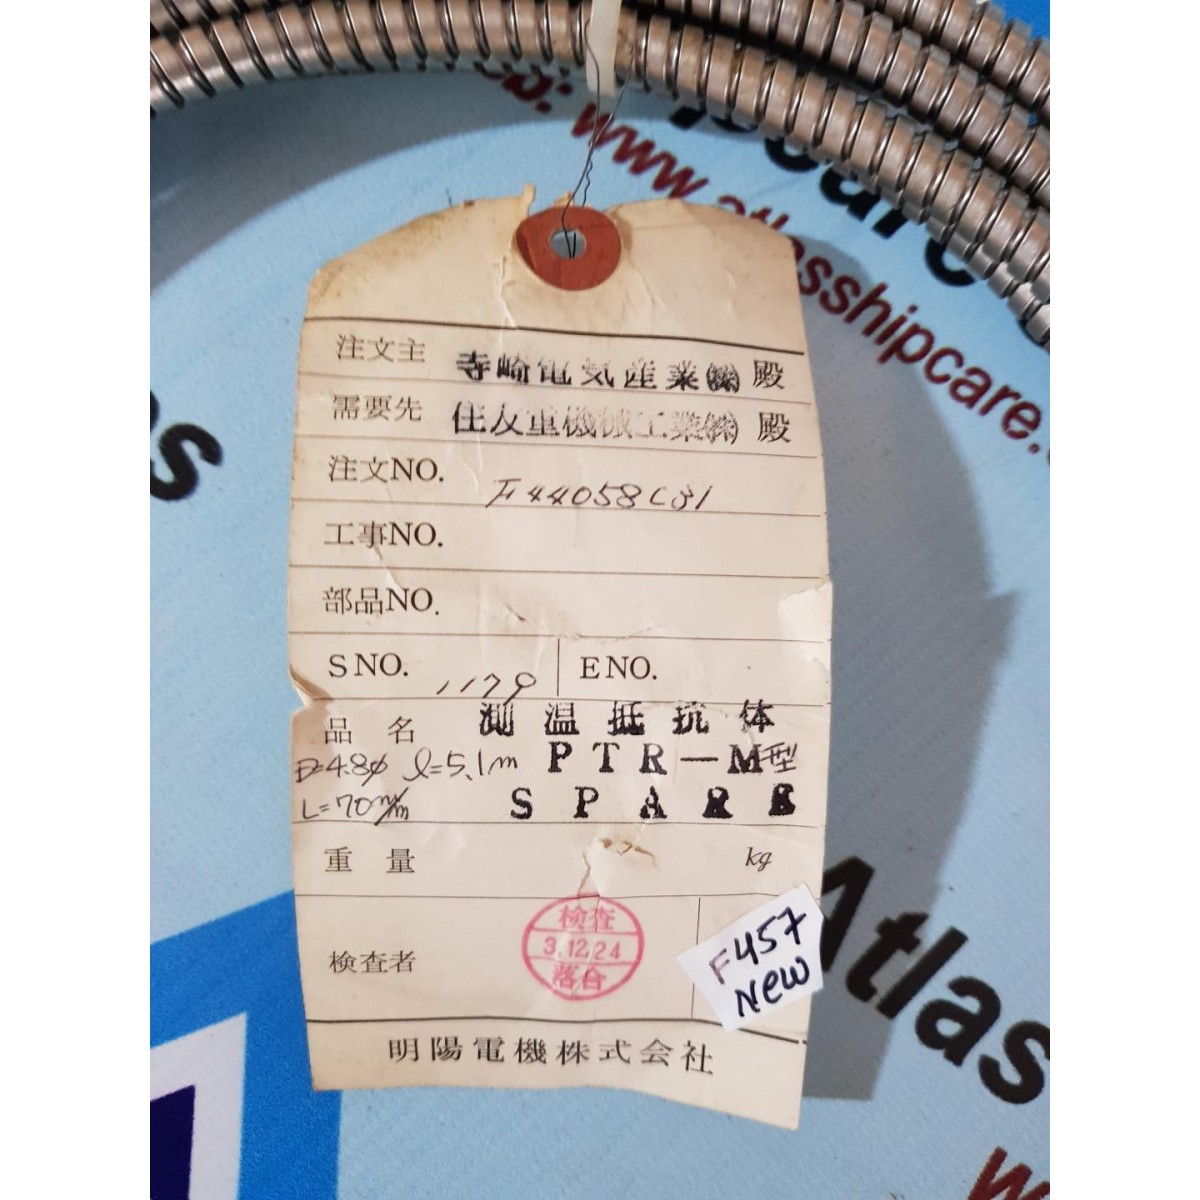 www.atlasshipcare.
注文主 寺崎電気産業㈱ 殿
需要先 住友重機械工業㈱ 殿
注文NO. F44058C31
工事NO.
部品NO.
S NO. 1179 E NO.
品 名 測 温 抵 抗 体
D=4.8φ l=5.1m PTR-M型
L=70m/m SPARE
重 量 kg
検査者
検査
3.12.24
落合
F457
New
明陽電機株式会社
Atlas